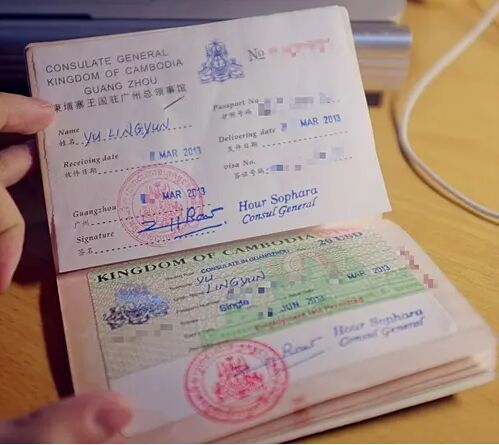 CONSULATE GENERAL
KINGDOM OF CAMBODIA
GUANG ZHOU
柬埔寨王国驻广州总领事馆
No
Name
姓名
YU LINGYUN
Passport No
护照号码
Receiving date
收件日期
MAR 2013
Delivering date
发件日期
MAR 2013
visa No.
签证号码
MAR 2013
Guangzhou
广州
Signature
签名
Hour Sophara
Consul General
KINGDOM OF CAMBODIA
20 USD
CONSULATE IN GUANGZHOU
YU
LINGYUN
MAR 2013
Single
JUN 2013
Employment Not Permitted
Hour Sophara
Consul General